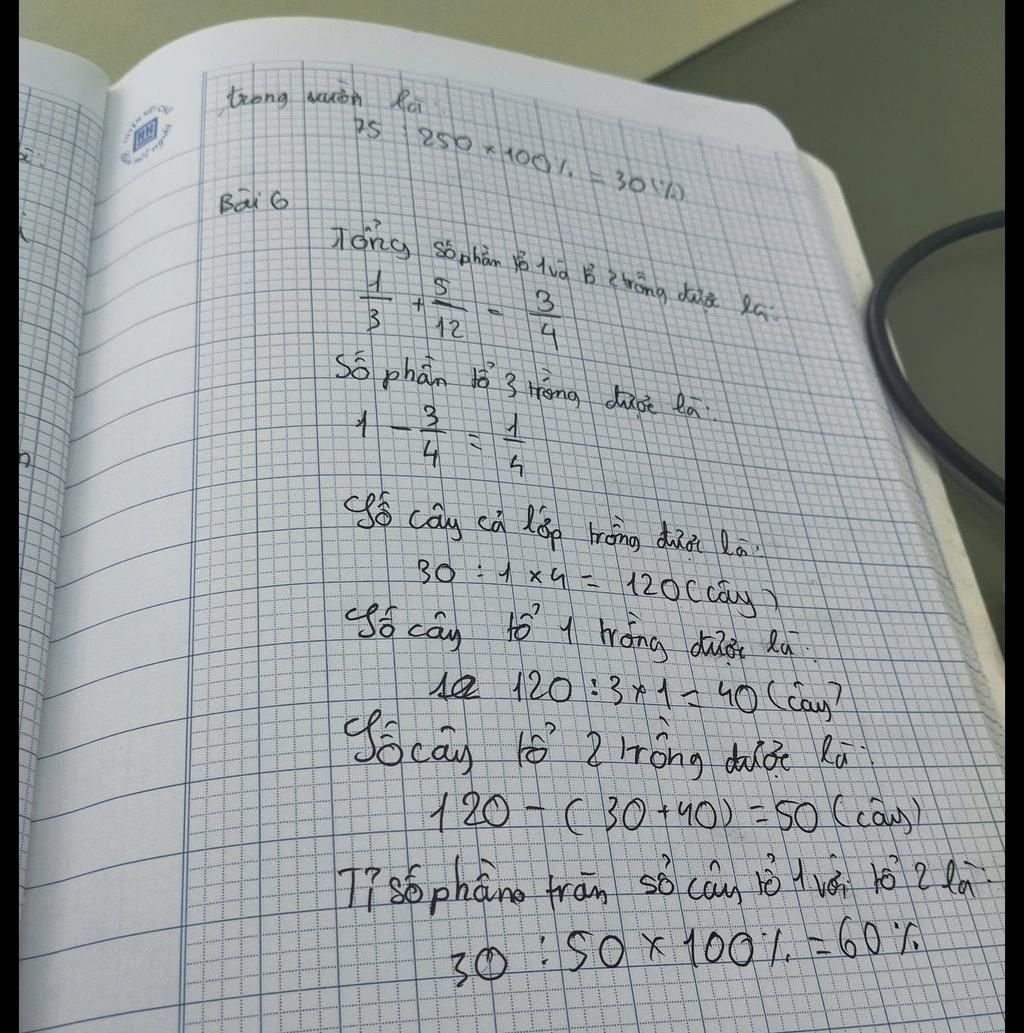 trong vườn là:
75 : 250 × 100% = 30 (%)
Bài 6
Tổng số phần tổ 1 và tổ 2 trồng được là:
1/3 + 5/12 = 3/4
Số phần tổ 3 trồng được là:
1 - 3/4 = 1/4
Số cây cả lớp trồng được là:
30 : 1 × 4 = 120 (cây)
Số cây tổ 1 trồng được là:
120 : 3 × 1 = 40 (cây)
Số cây tổ 2 trồng được là:
120 - (30 + 40) = 50 (cây)
Tỉ số phần trăn số cây tổ 1 với tổ 2 là:
30 : 50 × 100% = 60%